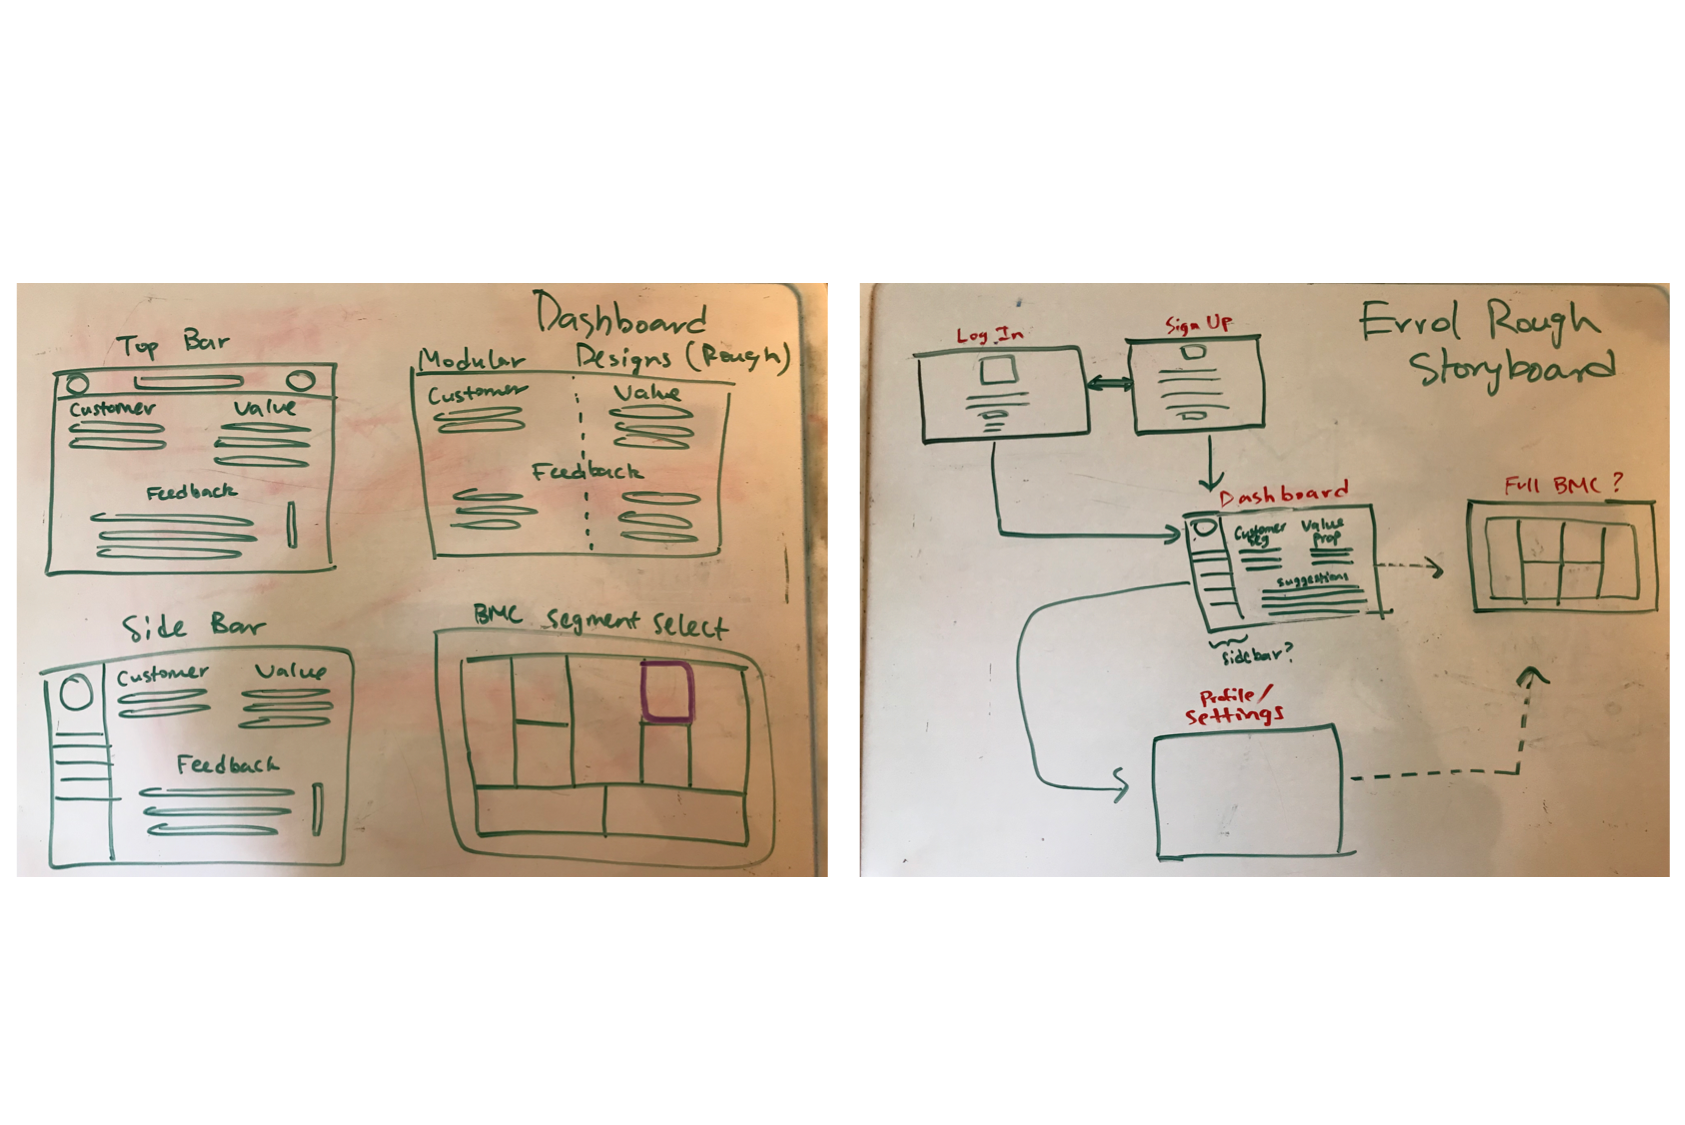 Dashboard
Designs (Rough)
Top Bar
Customer
Value
Feedback
Modular
Customer
Value
Feedback
Side Bar
Customer
Value
Feedback
BMC segment select
Errol Rough
Storyboard
Log In
Sign Up
Dashboard
Customer
seg
Value
prop
suggestions
sidebar?
Full BMC?
Profile/
settings